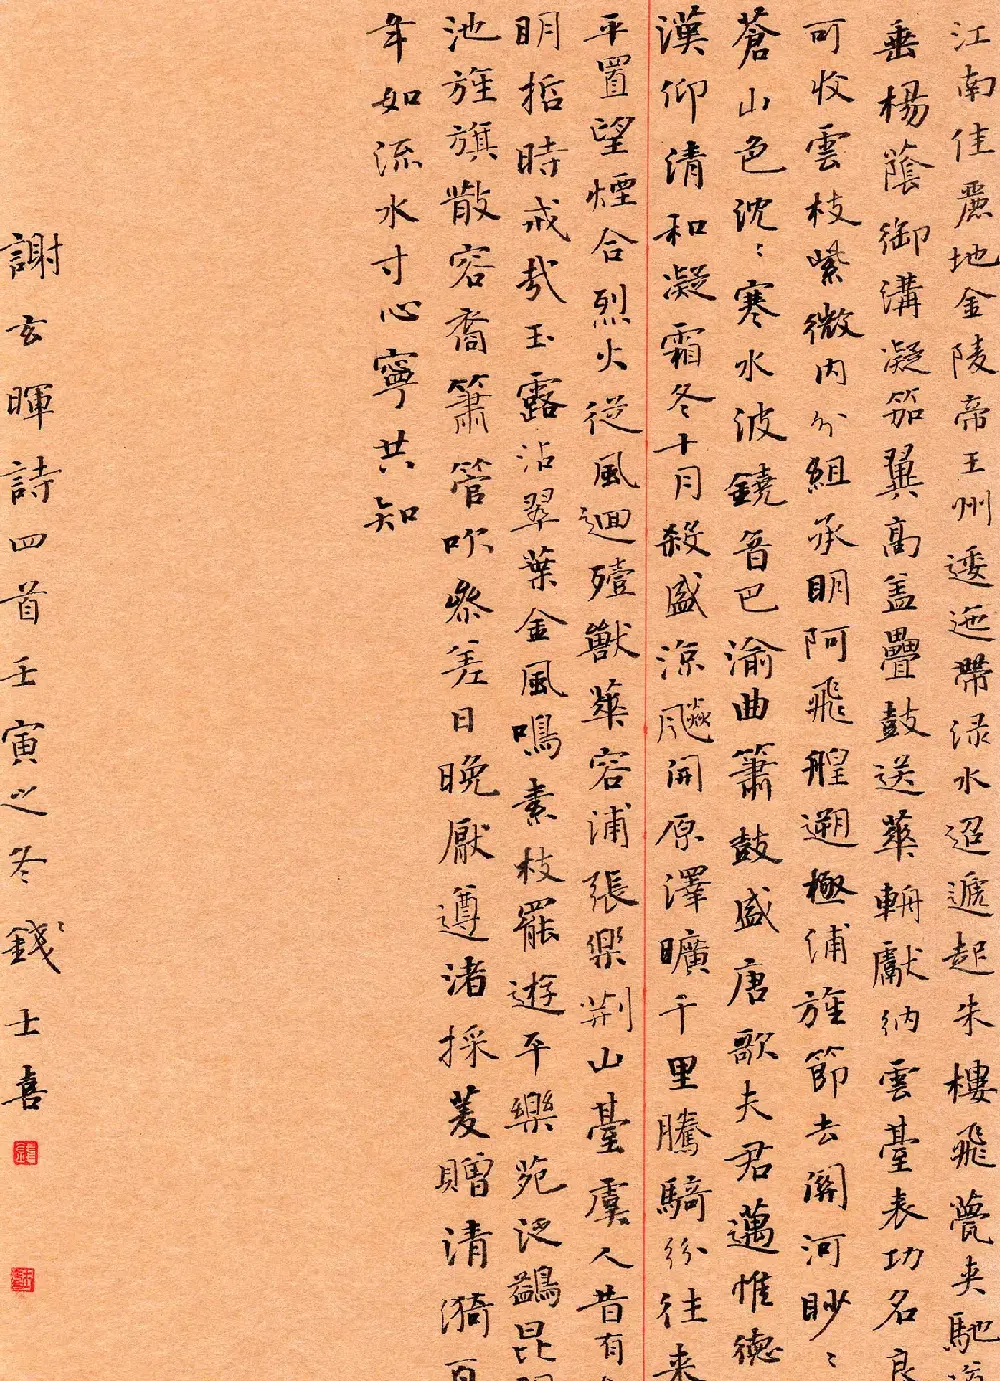 江南佳麗地金陵帝王州逶迤帶淥水迢遞起朱樓飛甍夾馳
垂楊蔭御溝凝笳翼高盖疊鼓送華輈獻納雲臺表功名良
可收雲枝紫微内分組承明阿飛艎遡極浦旌節去關河眇〻
蒼山色沈〻寒水波鐃音巴渝曲簫鼓盛唐歌夫君邁惟德
漢仰清和凝霜冬十月殺盛涼飈開原澤曠千里騰騎紛往来
平置望煙合烈火從風迴殪獸華容浦張樂荆山臺虞人昔有
明哲時戒哉玉露沾翠葉金風鳴素枝罷遊平樂苑泛鷁昆
池旌旗散容裔簫管吹參差日晚厭遵渚採菱贈清漪百
年如流水寸心寧共知
謝玄暉詩四首壬寅之冬錢士喜